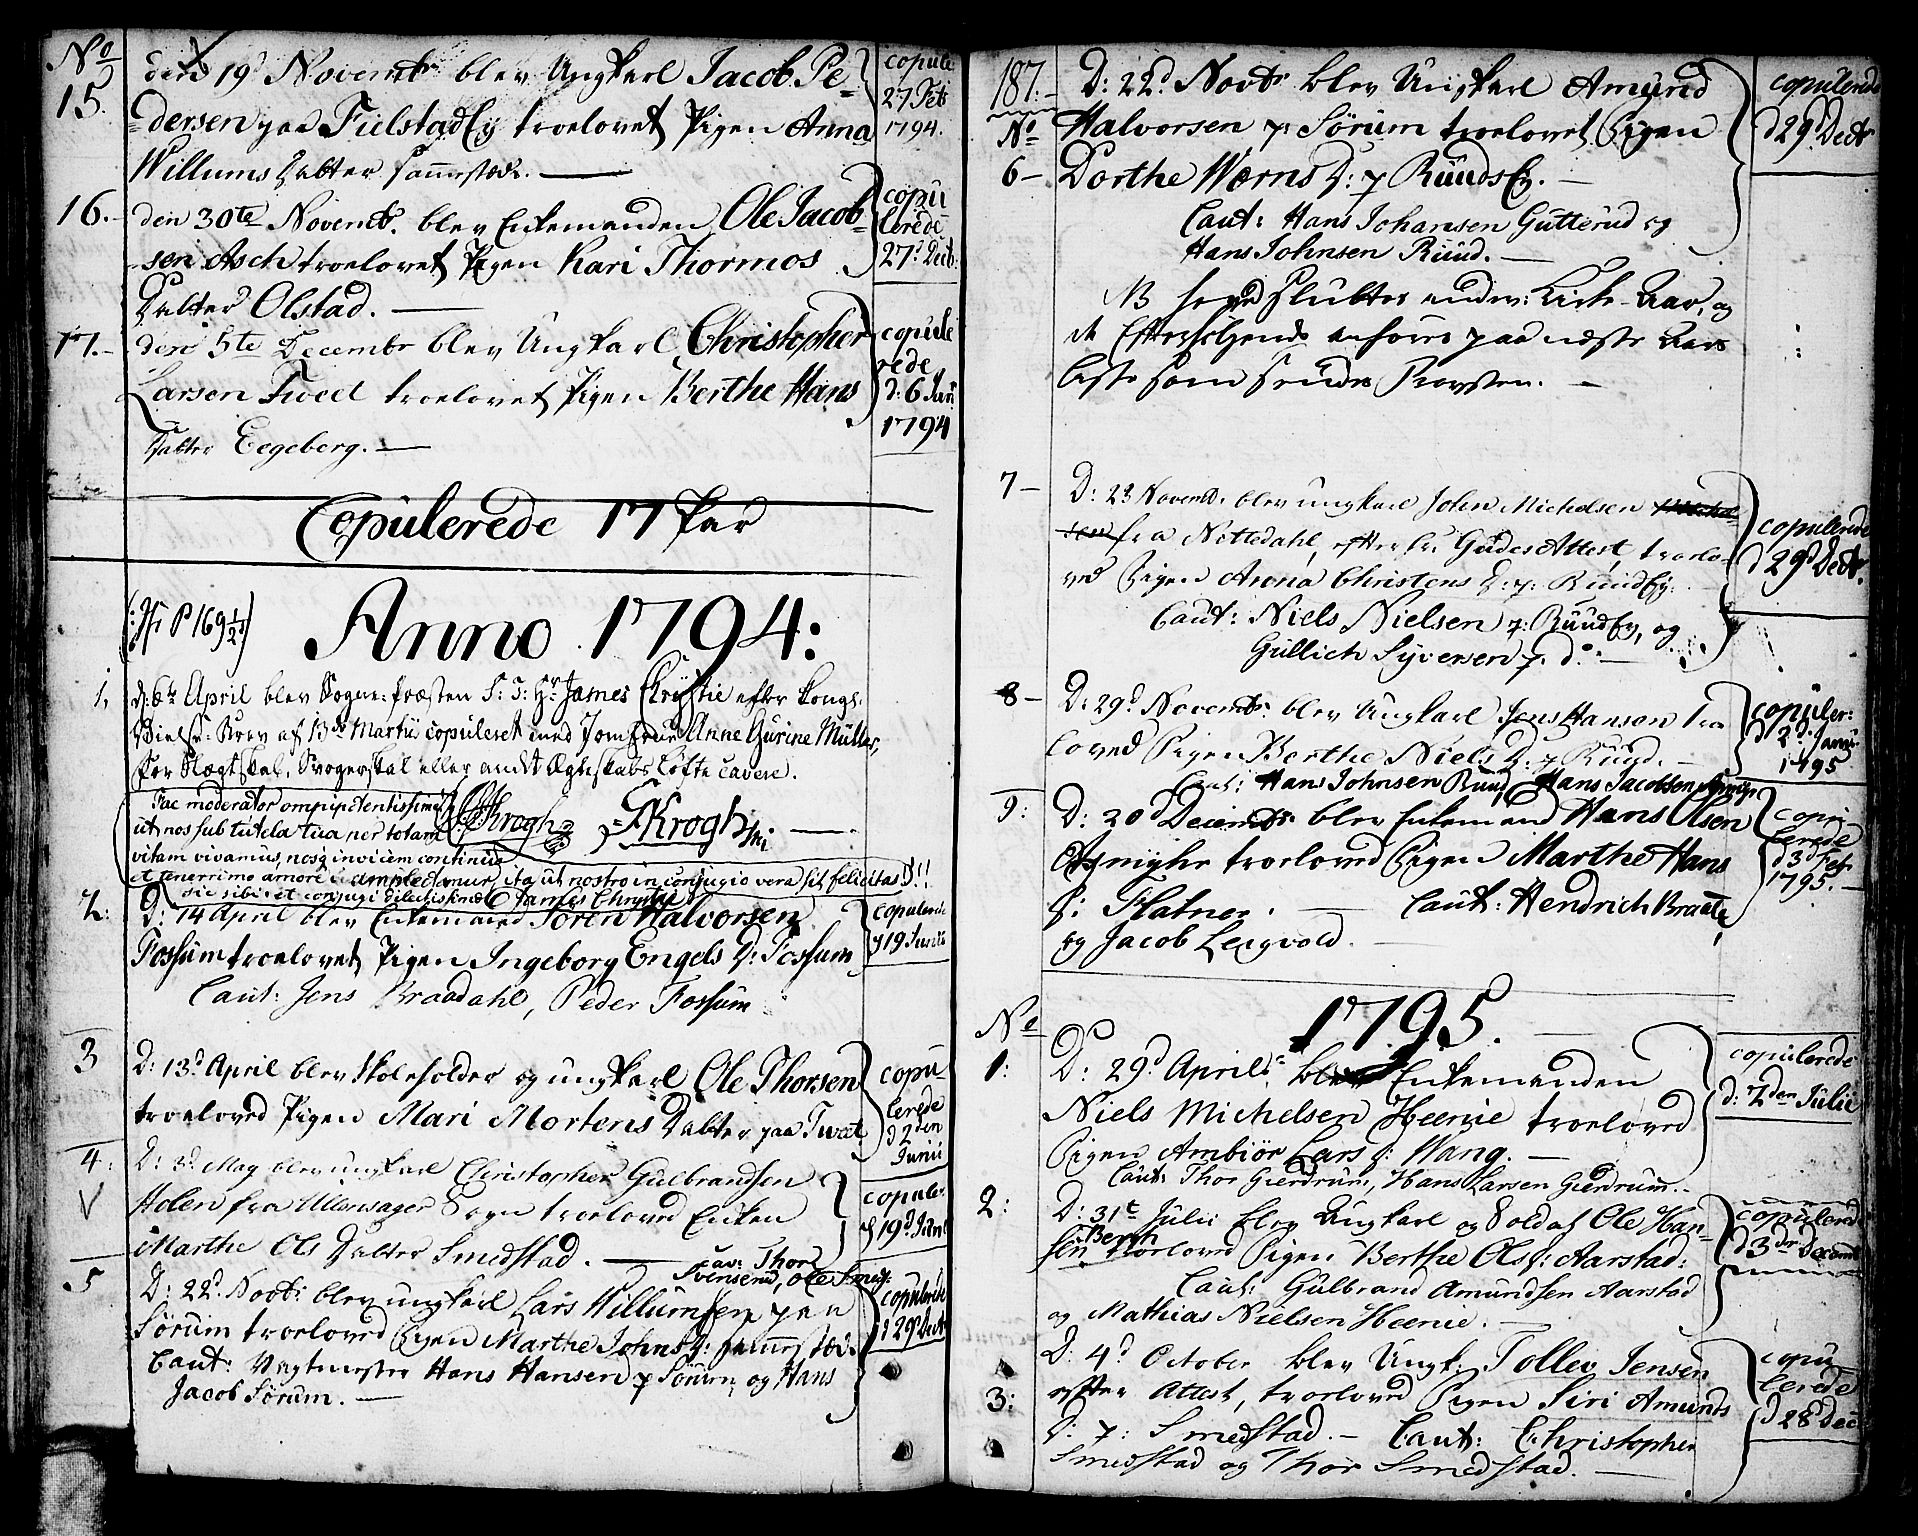 No
15.
den 19d Novembr blev Ungkarl Jacob Pe-
dersen paa FielstadEy troelovet Pigen Anna
Willums Datter sammestæds. —
copule
27 Feb
1794.
16.-
den 30te Novembr. blev Enkemanden Ole Jacob-
sen Asch troelovet Pigen Kari Thormos
Datter Olstad. —
copu
lerede
27d Decb:
17.-
den 5te Decembr blev Ungkarl Christopher
Larsen Tveel troelovet Pigen Berthe Hans
Datter Eegeberg. —
copule
rede
d: 6 Jan
1794
Copulerede 17 Par
(: P 169 1/2)
Anno 1794:
1,
d: 6te April blev Sogne-Præsten S: T: Hr James Chrystie efter Kongl:
Brev af 13de Martii copuleret med Jomfrue Anne Gurine Müller,
for Slægtskab, Svogerskab eller andet Ægteskabs Løfte cavere.
Fac moderator omnipotentissime
ut nos sub tutela tua per totam
vitam vivamus, nosq invicem continuo
et tenerrimo amore amplectamur, ita ut nostro in conjugio vera sit felicitas D!!
sic sibi et conjugi dilectissimæ James Chrystie
Krogh
Krogh
2:
D: 14 April blev Enkemand Søren Halvorsen
Fossum troelovet Pigen Ingeborg Engels D: Fossum
Caut: Jens Braadahl, Peder Fossum
copulerede
d 19 Junii
3
D: 13d April blev Skoleholder og ungkarl Ole Thorsen
troeloved Pigen Mari Mortens Datter paa Tvæt
copu-
lerede
d 2den
Junii
4:
V
D: 3d May blev ungkarl Christopher Gulbrandsen
Holen fra Ullensager Sogn troeloved Enken
Marthe Ols Datter Smedstad. —
cav: Thor
Svenserud, Ole Smeds:
copuler
d 19d Juni
5
D: 22d Novb: blev ungkarl Lars Willumsen paa
Sørum troeloved Pigen Marthe Johns D: sammestæds.
Caut: Vagtmester Hans Hansen p Sørum, og Hans
Jacob Sørum. —
copulerede
d 29d Decb
187.-
No
6-
D: 22d Novbr blev Ungkarl Amund
Halvorsen p: Sørum troelovet Pigen
Dorthe Wærns D: p RuudsEy. —
Caut: Hans Johansen Gutterud og
Hans Johnsen Ruud. —
copulerede
d 29d Decbr
NB her sluttes Kirke-Aar, og
de Efterfølgende anføres paa næste Aars
Liste som sendes Provsten. —
7-
D: 23 Novemb: blev ungkarl John Michelsen
fra Nittedahl, efter Hr. Gudes Attest, troelo-
ved Pigen Anna Christens D: p: RuudEy:
Caut: Niels Nielsen p: RuudEy, og
Gullich Syversen p. do: —
copulerede
d 29d Decbr.
8-
D: 29d Novembr: blev Ungkarl Jens Hansen troe
loved Pigen Berthe Niels D: p Ruud. —
Caut: Hans Johnsen Ruud, Hans Jacobsen
copuler:
d 2d Janu:
1795
9:
D: 20d Decembr blev Enkemand Hans Olsen
troeloved Pigen Marthe Hans
D: Flatner. — Caut: Hendrich Braate,
og Jacob Leigvold. —
copu-
lerede
d 3d Feb
1795. —
1795.
No
1:
D: 29d April: blev Enkemanden
Niels Michelsen Heenie troeloved
Pigen Ambiør Lars D: Wang. —
Caut: Thor Gierdrum, Hans Larsen Gierdrum.
copulerede
d: 7den Julii
2:
D: 31te Julii blev Ungkarl og Soldat Ole Han-
sen Bergh troeloved Pigen Berthe Ols D: Aarstad:
Caut: Gulbrand Amundsen Aarstad
og Mathias Nielsen Heenie. —
copulered
d 3die Decemb
3:
D: 4d October blev Ungk: Tollev Jensen
efter Attest, troeloved Pigen Siri Amunds
D: p: Smedstad. — Caut: Christopher
Smedstad og Thor Smedstad. —
copu-
lerede
d 28d Dec